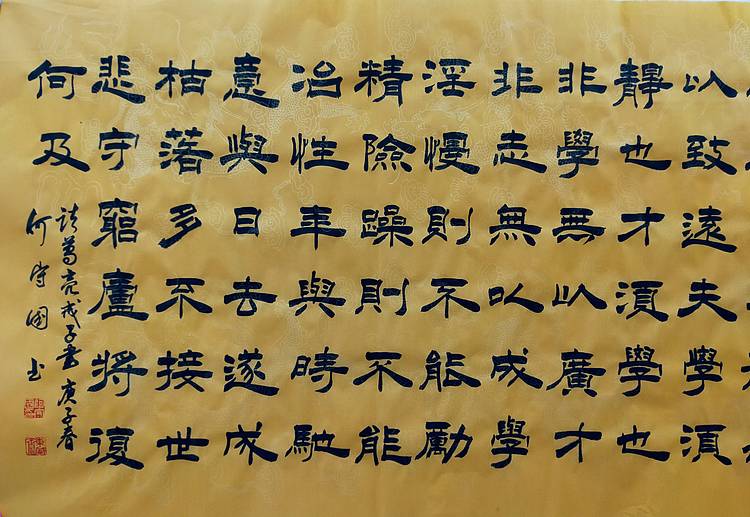 以致遠夫學須
靜也才須學也
非學無以廣才
非志無以成學
淫慢則不能勵
精險躁則不能
冶性年與時馳
意與日去遂成
枯落多不接世
悲守窮廬將復
何及
諸葛亮戒子書 庚子春
何守國书